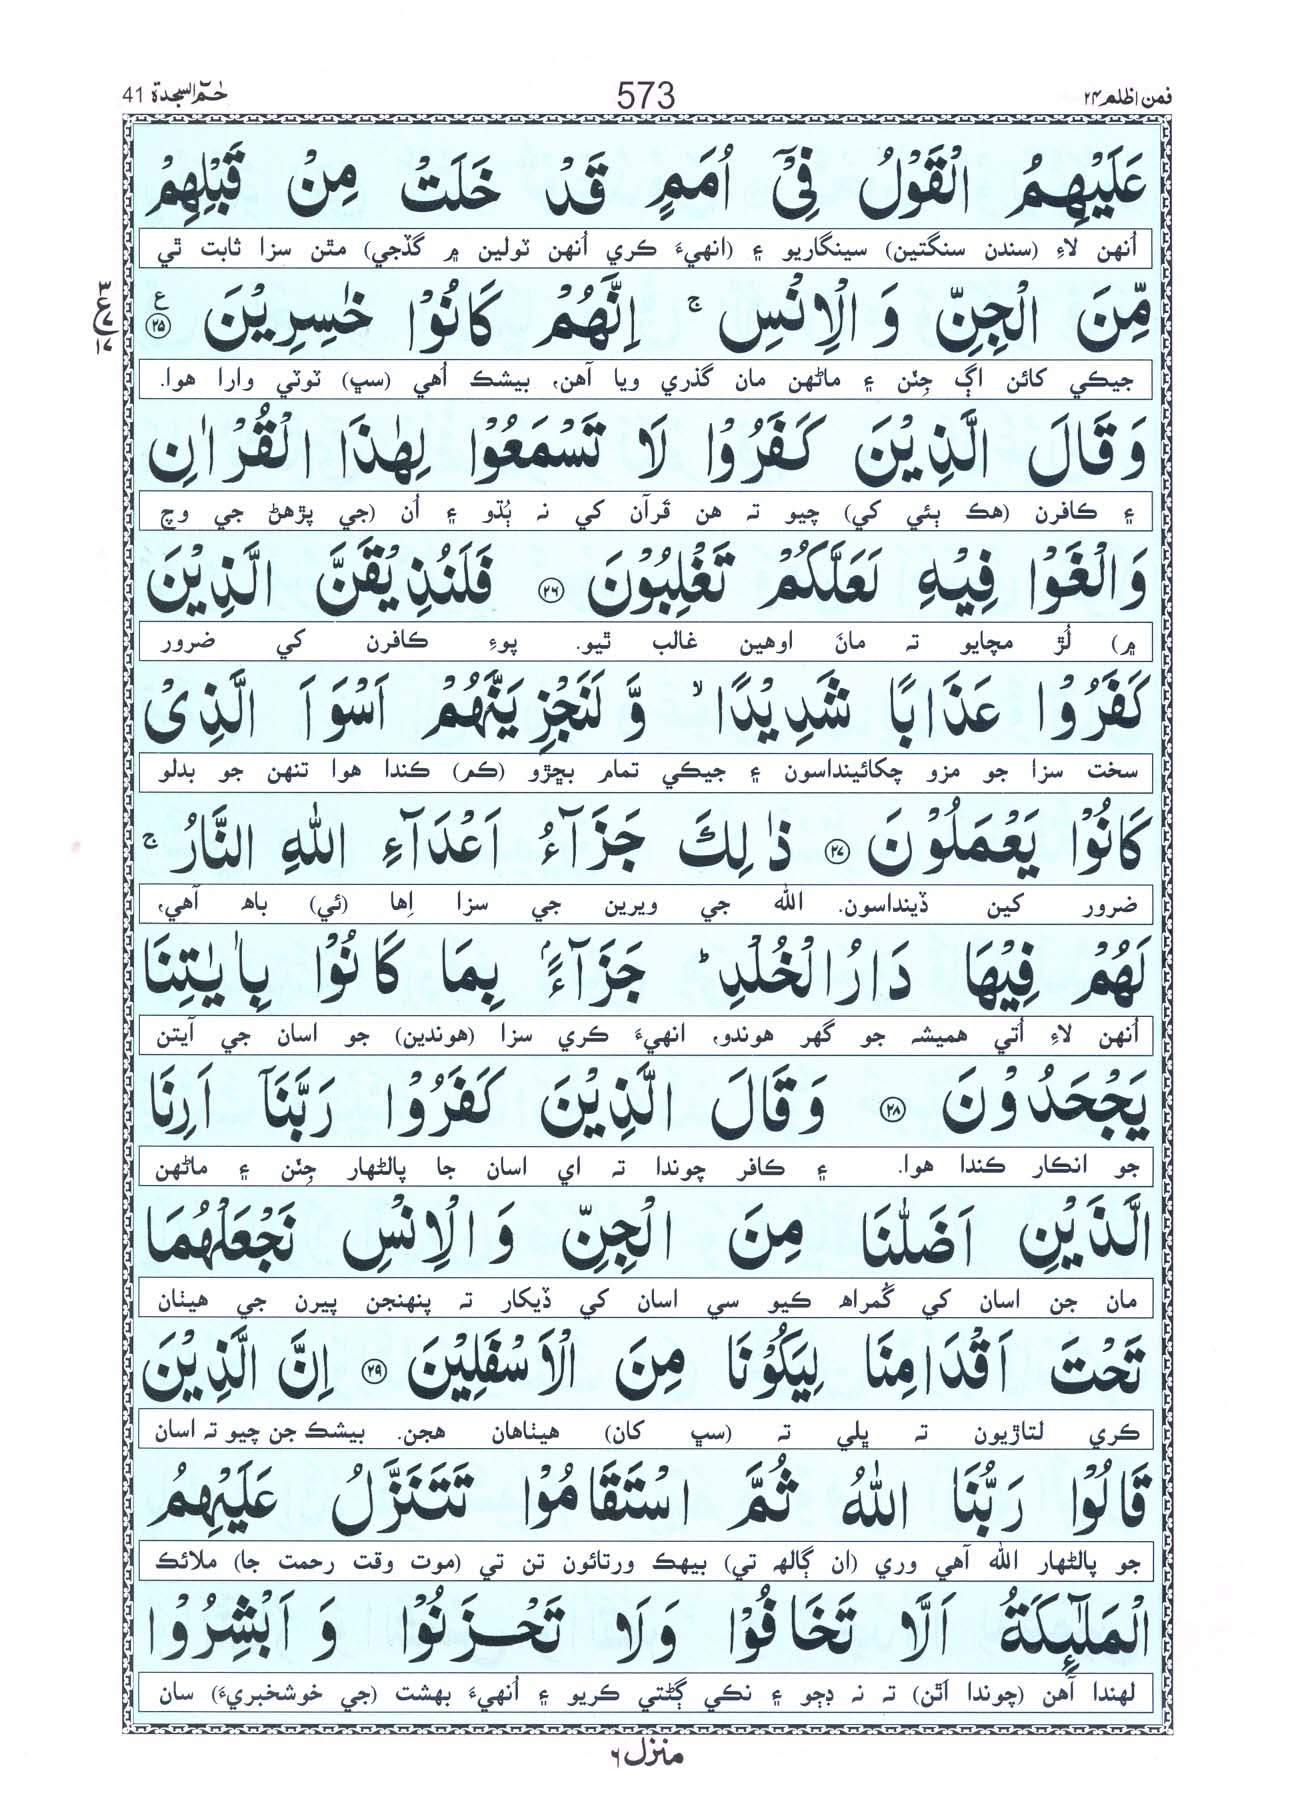 فمن اظلم ۲۴
573
حٰمٓ السجدة 41
عَلَيْهِمُ الْقَوْلُ فِيْٓ اُمَمٍ قَدْ خَلَتْ مِنْ قَبْلِهِمْ
اُنهن لاءِ (سندن سنگتين) سينگاريو ۽ (انهيءَ ڪري اُنهن ٽولين ۾ گڏجي) مٿن سزا ثابت ٿي
مِّنَ الْجِنِّ وَ الْاِنْسِ ۚ اِنَّهُمْ كَانُوْا خٰسِرِيْنَ ۲۵ ع
۳ ع ۷ ۱۷
جيڪي کائن اڳ جِنّن ۽ ماڻهن مان گذري ويا آهن، بيشڪ اُهي (سڀ) ٽوٽي وارا هوا.
وَ قَالَ الَّذِيْنَ كَفَرُوْا لَا تَسْمَعُوْا لِهٰذَا الْقُرْاٰنِ
۽ ڪافرن (هڪ ٻئي کي) چيو تہ هن قرآن کي نہ ٻُڌو ۽ اُن (جي پڙهڻ جي وچ
وَ الْغَوْا فِيْهِ لَعَلَّكُمْ تَغْلِبُوْنَ ۲۶ فَلَنُذِيْقَنَّ الَّذِيْنَ
۾) لُڙ مچايو تہ مانَ اوهين غالب ٿيو. پوءِ ڪافرن کي ضرور
كَفَرُوْا عَذَابًا شَدِيْدًا ۙ وَّ لَنَجْزِيَنَّهُمْ اَسْوَاَ الَّذِيْ
سخت سزا جو مزو چکائينداسون ۽ جيڪي تمام بڇڙو (ڪم) ڪندا هوا تنهن جو بدلو
كَانُوْا يَعْمَلُوْنَ ۲۷ ذٰلِكَ جَزَآءُ اَعْدَآءِ اللّٰهِ النَّارُ ۚ
ضرور کين ڏينداسون. الله جي ويرين جي سزا اِها (ئي) باھ آهي،
لَهُمْ فِيْهَا دَارُ الْخُلْدِ ؕ جَزَآءًۢ بِمَا كَانُوْا بِاٰيٰتِنَا
اُنهن لاءِ اُتي هميشہ جو گهر هوندو، انهيءَ ڪري سزا (هوندين) جو اسان جي آيتن
يَجْحَدُوْنَ ۲۸ وَ قَالَ الَّذِيْنَ كَفَرُوْا رَبَّنَآ اَرِنَا
جو انڪار ڪندا هوا. ۽ ڪافر چوندا تہ اي اسان جا پالڻهار جِنّن ۽ ماڻهن
الَّذَيْنِ اَضَلّٰنَا مِنَ الْجِنِّ وَ الْاِنْسِ نَجْعَلْهُمَا
مان جن اسان کي گُمراھ ڪيو سي اسان کي ڏيکار تہ پنهنجن پيرن جي هيٺان
تَحْتَ اَقْدَامِنَا لِيَكُوْنَا مِنَ الْاَسْفَلِيْنَ ۲۹ اِنَّ الَّذِيْنَ
ڪري لتاڙيون تہ ڀلي تہ (سڀ کان) هيٺاهان هجن. بيشڪ جن چيو تہ اسان
قَالُوْا رَبُّنَا اللّٰهُ ثُمَّ اسْتَقَامُوْا تَتَنَزَّلُ عَلَيْهِمُ
جو پالڻهار الله آهي وري (ان ڳالھ تي) بيهڪ ورتائون تن تي (موت وقت رحمت جا) ملائڪ
الْمَلٰٓئِكَةُ اَلَّا تَخَافُوْا وَلَا تَحْزَنُوْا وَ اَبْشِرُوْا
لهندا آهن (چوندا اَٿن) تہ نہ ڊڄو ۽ نڪي ڳڻتي ڪريو ۽ اُنهيءَ بهشت (جي خوشخبريءَ) سان
منزل ۶